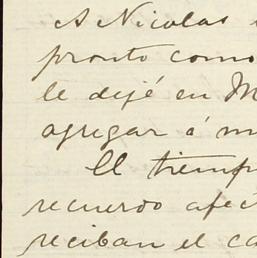 A Nicolas
pronto como
le dejé en M
agregar á m
El tiemp
recuerdo afec
reciban el ca